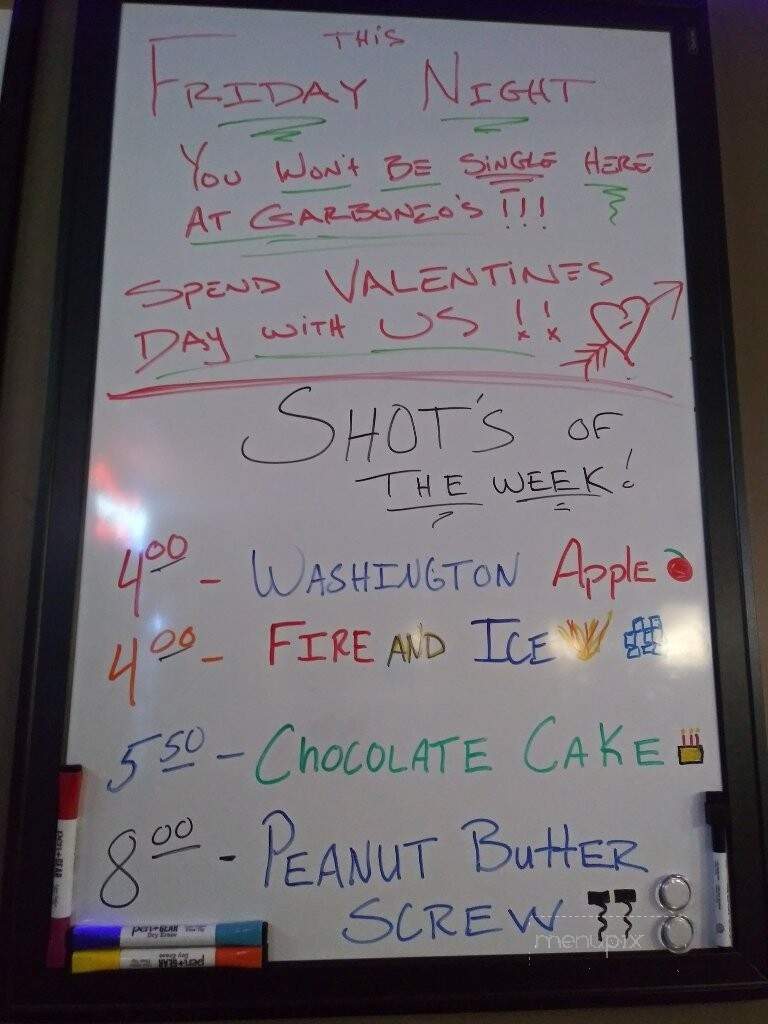 THIS
FRIDAY NIGHT
YOU WON't BE SINGLE HERE
AT GARBONZO'S !!!
SPEND VALENTINES
DAY WITH US !!
SHOT'S OF
THE WEEK!
4 00 - WASHINGTON Apple
4 00 - FIRE AND ICE
5 50 - CHOCOLATE CAKE
8 00 - PEANUT ButtER
SCREW
menupix
pen+GEAR
Dry Erase
pen+GEAR
pen+GEAR